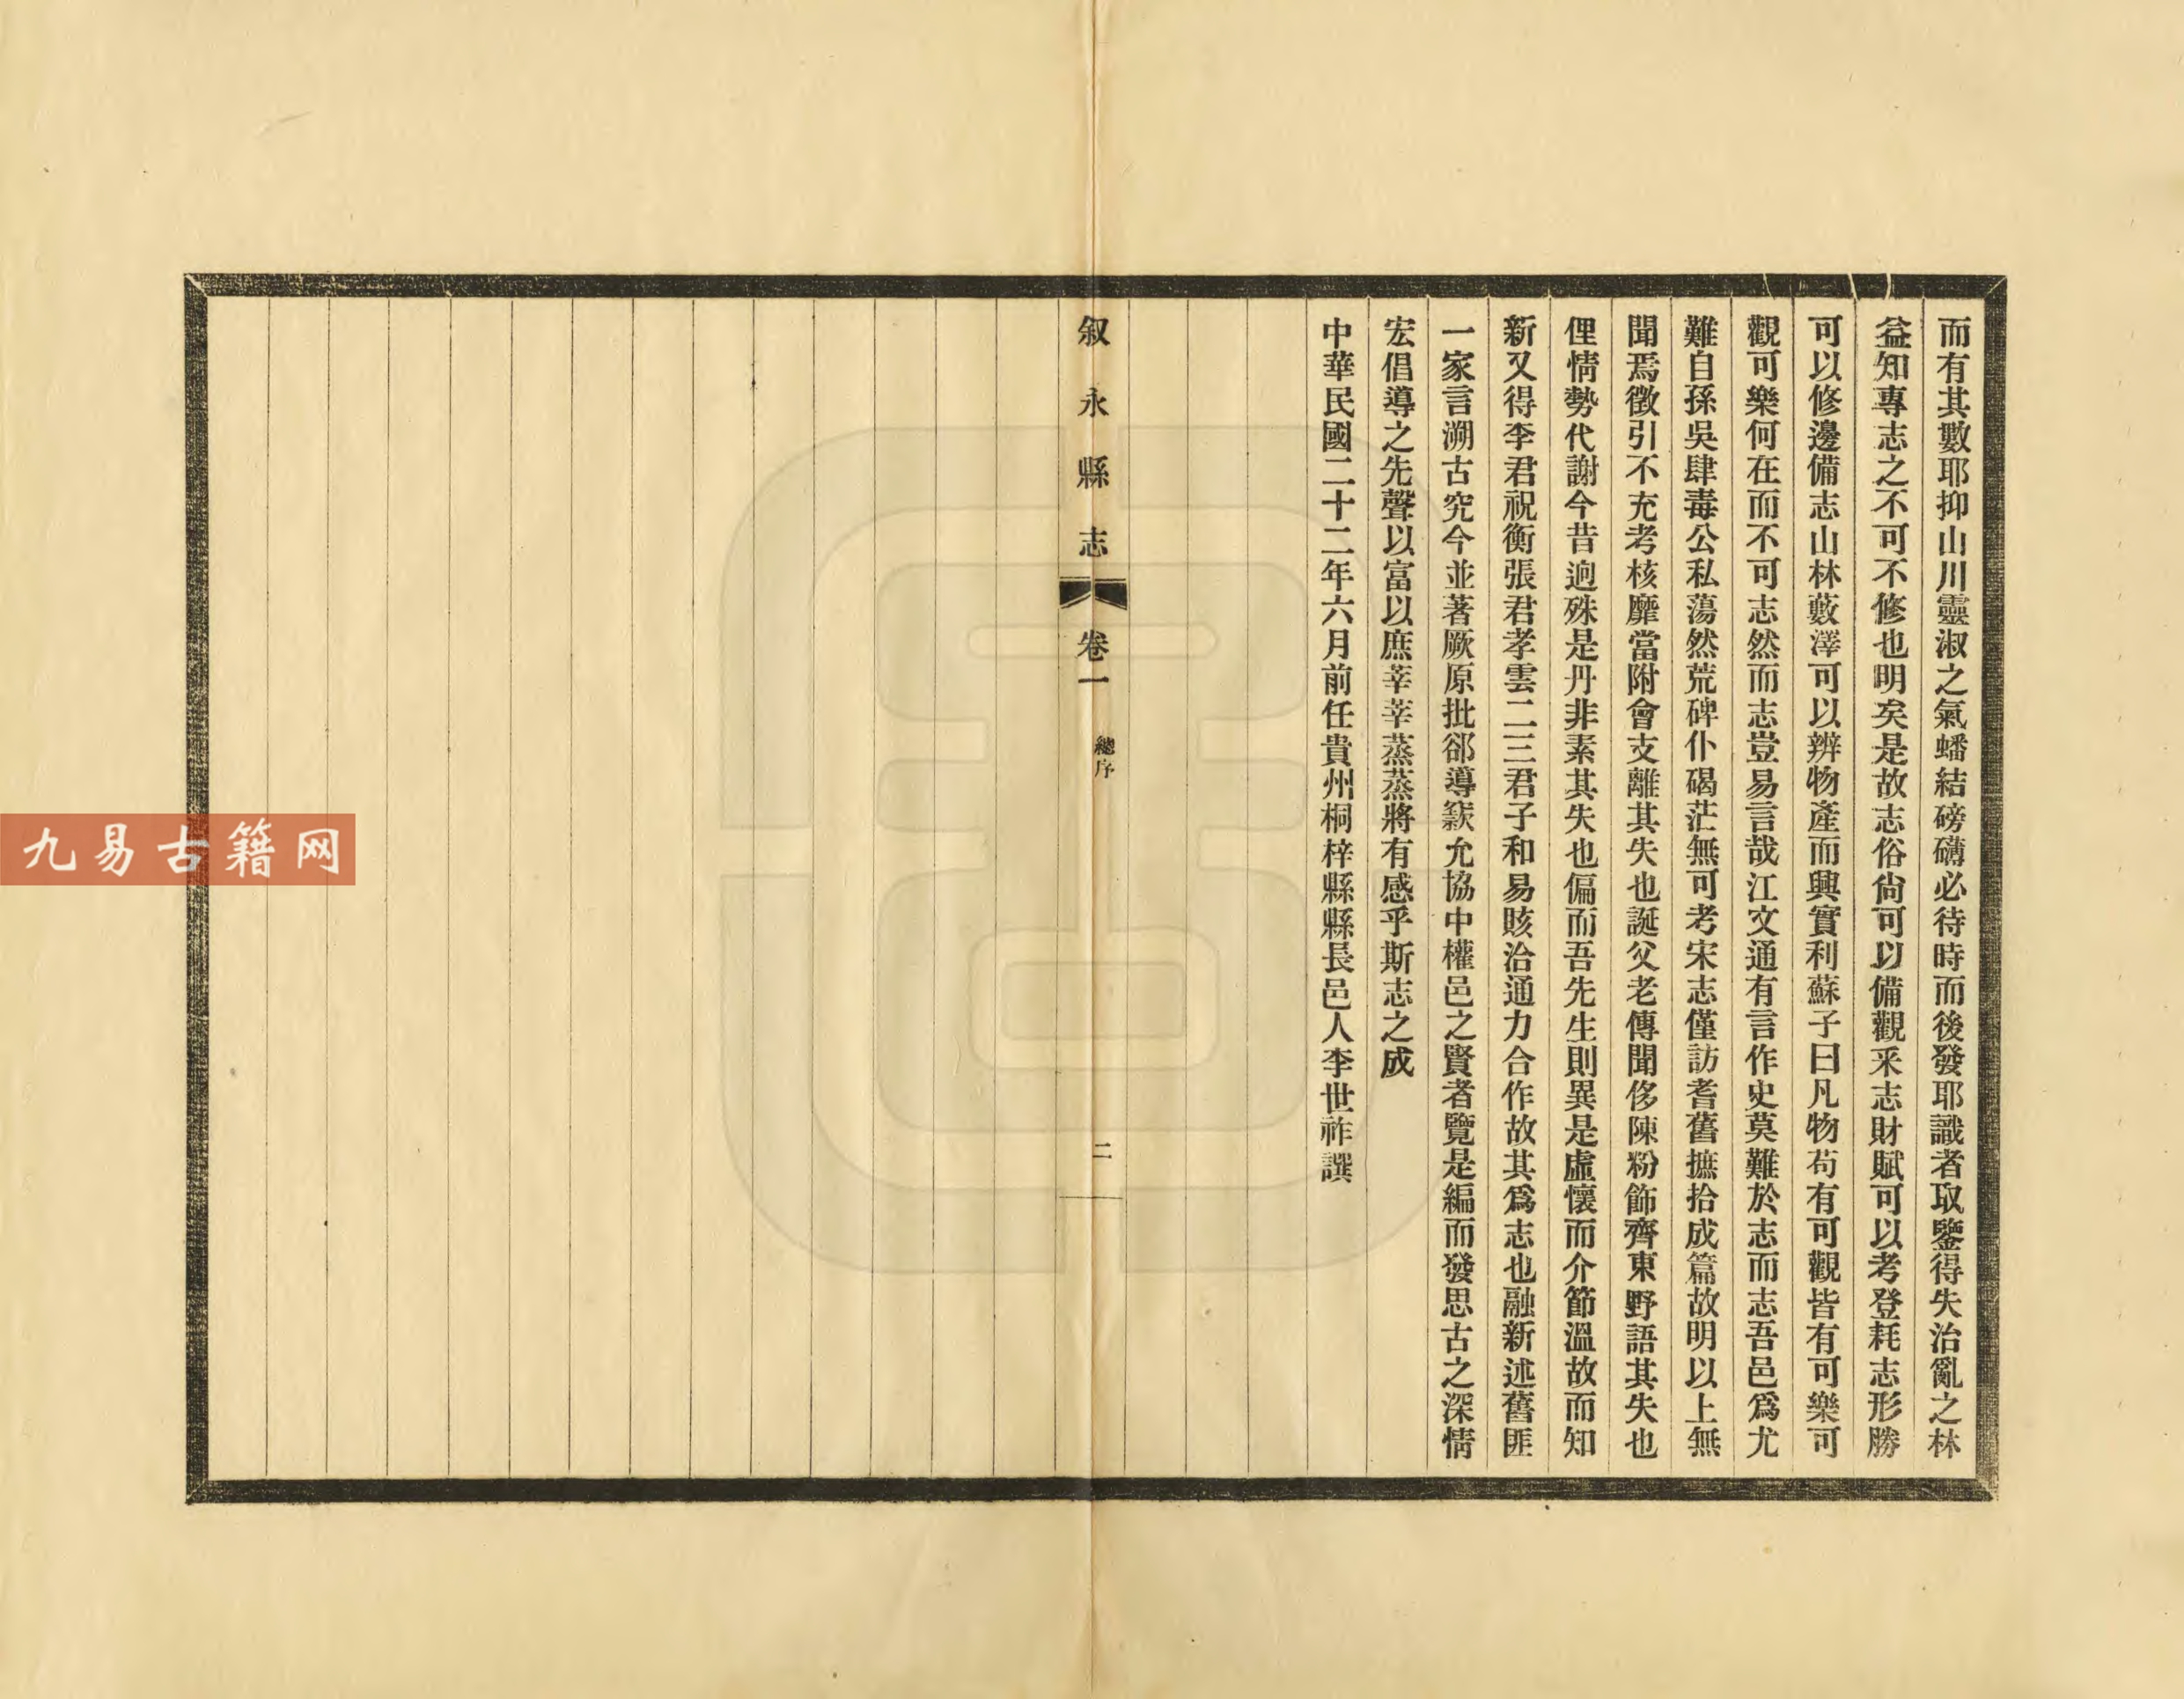 而有其數耶抑山川靈淑之氣蟠結磅礴必待時而後發耶識者取鑒得失治亂之林
益知專志之不可不修也明矣是故志俗尚可以備觀采志財賦可以考登耗志形勝
可以修邊備志山林藪澤可以辨物產而興實利蘇子曰凡物苟有可觀皆有可樂可
觀可樂何在而不可志然而志豈易言哉江文通有言作史莫難於志而志吾邑爲尤
難自孫吳肆毒公私蕩然荒碑仆碣茫無可考宋志僅訪耆舊摭拾成篇故明以上無
聞焉徵引不充考核靡當附會支離其失也誕父老傳聞侈陳粉飾齊東野語其失也
俚情勢代謝今昔逈殊是丹非素其失也偏而吾先生則異是虛懷而介節溫故而知
新又得李君祝衡張君孝雲二三君子和易賅洽通力合作故其爲志也融新述舊匪
一家言溯古究今並著厥原批郤導窾允協中權邑之賢者覽是編而發思古之深情
宏倡導之先聲以富以庶莘莘蒸蒸將有感乎斯志之成
中華民國二十二年六月前任貴州桐梓縣縣長邑人李世祚譔
叙永縣志 卷一 總序 二
九易古籍网